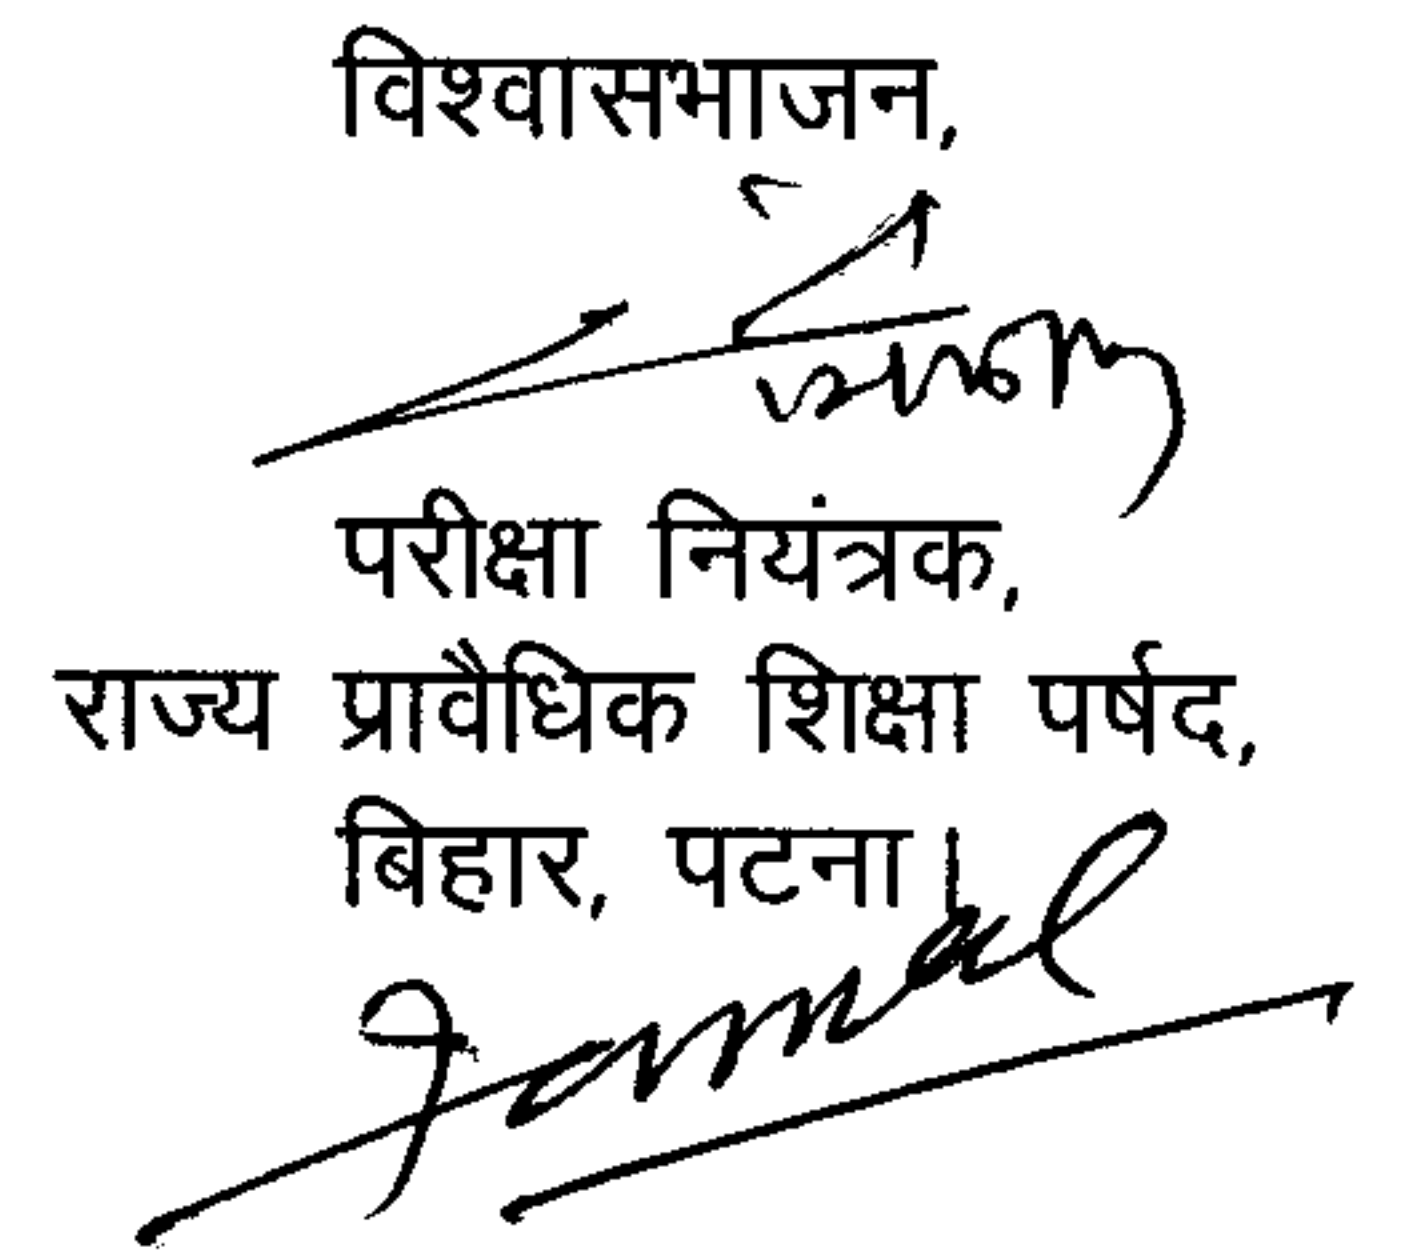 विश्वासभाजन,
परीक्षा नियंत्रक,
राज्य प्रावैधिक शिक्षा पर्षद,
बिहार, पटना।